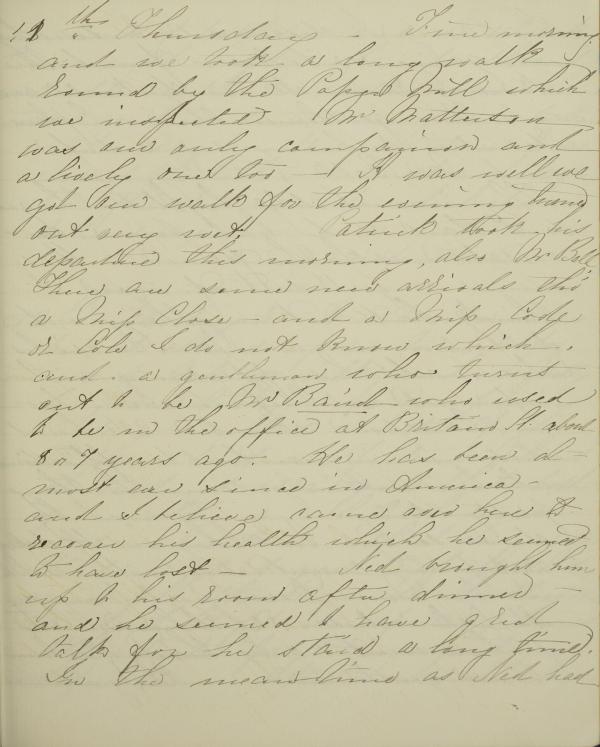 12th Thursday - Fine morning
and we took a long walk
round by the Paper Mill which
we inspected Mr Matterson
was our only companion and
a lively one too - It was well we
got our walk for the evening turned
out very wet. Patrick took his
departure this morning, also Mr Bell
There are some new arrivals tho'
a Miss Close - and a Miss Code
or Cole I do not know which.
and a gentleman who turns
out to be Mr Baird who used
to be in the office at Britain St. about
8 or 7 years ago. He has been al-
most ever since in America -
and I believe came over here to
recover his health which he seemed
to have lost - Ned brought him
up to his room after dinner -
and he seemed to have great
talk for he staid a long time.
In the meantime as Ned had